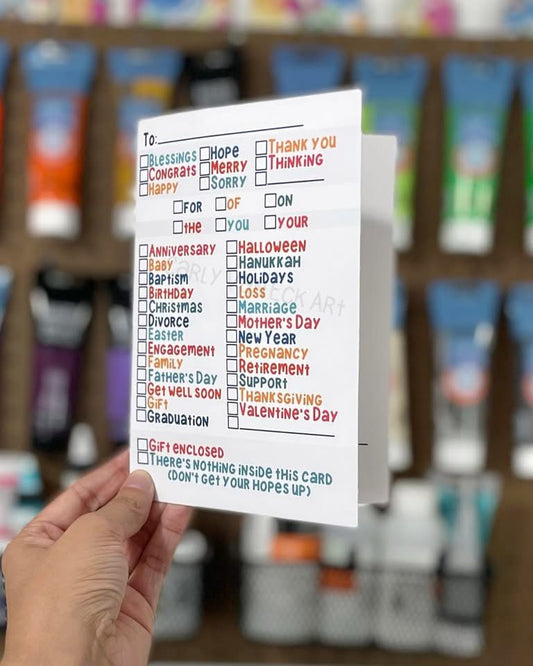 To:
Blessings Hope Thank you
Congrats Merry Thinking
Happy Sorry
For of on
the you your
Anniversary
Baby
Baptism
Birthday
Christmas
Divorce
Easter
Engagement
Family
Father's Day
Get well soon
Gift
Graduation
Halloween
Hanukkah
Holidays
Loss
Marriage
Mother's Day
New Year
Pregnancy
Retirement
Support
Thanksgiving
Valentine's Day
Gift enclosed
There's nothing inside this card
(Don't get your hopes up)